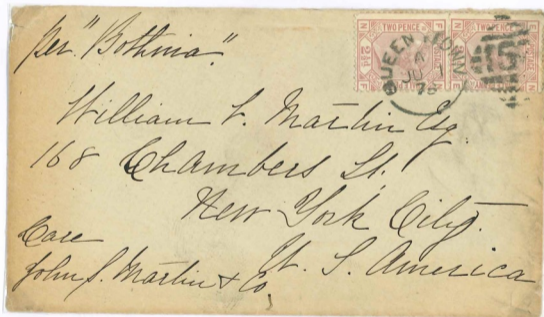 per "Bothnia".
TWO PENCE
QUEENSTOWN
JU 1
15
William L. Martin Esq.
168 Chambers St.
New York City.
U. S. America
Care
John S. Martin & Co